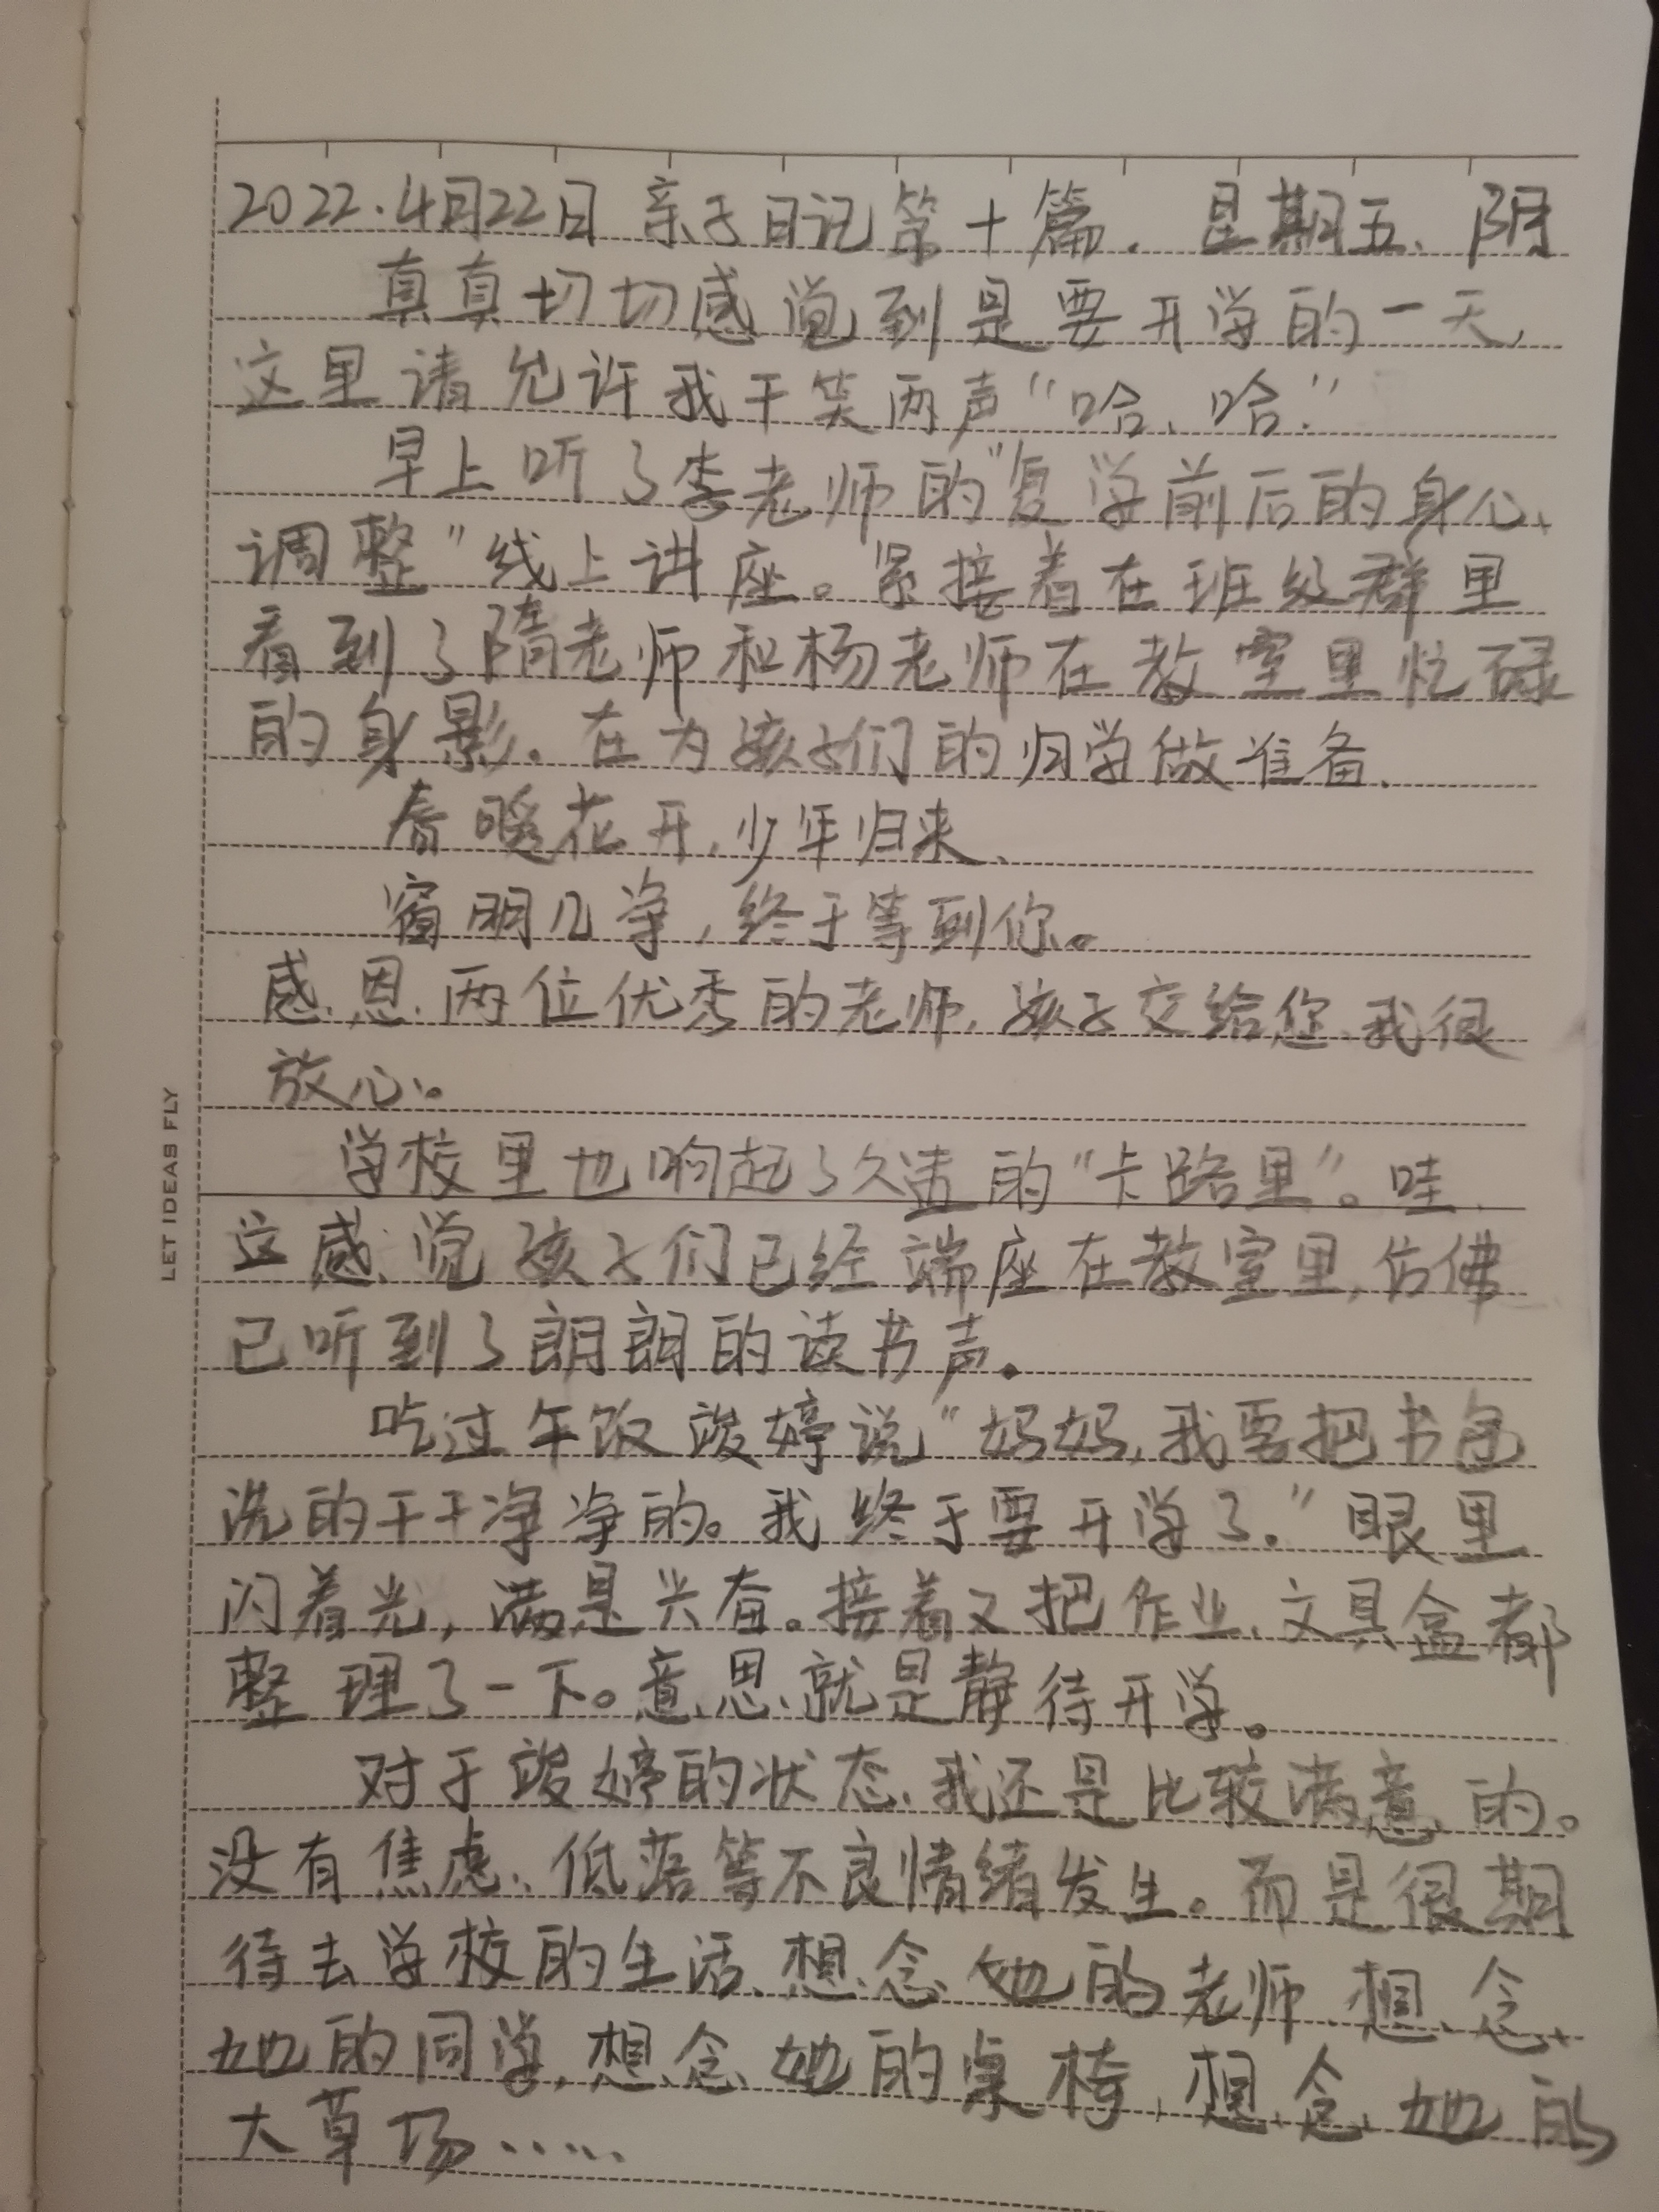 2022.4月22日 亲子日记第十篇. 星期五、阴
真真切切感觉到是要开学的一天,
这里请允许我干笑两声"哈、哈."
早上听了李老师的"复学前后的身心
调整"线上讲座。紧接着在班级群里
看到了隋老师和杨老师在教室里忙碌
的身影.在为孩子们的归学做准备.
春暖花开,少年归来、
窗明几净,终于等到你。
感恩两位优秀的老师,孩子交给您、我很
放心。
学校里也响起了久违的"卡路里"。哇、
这感觉孩子们已经端座在教室里,仿佛
已听到了朗朗的读书声.
吃过午饭竣婷说"妈妈,我要把书包
洗的干干净净的。我终于要开学了."眼里
闪着光,满是兴奋。接着又把作业、文具盒都
整理了一下。意思就是静待开学。
对于竣婷的状态、我还是比较满意的。
没有焦虑、低落等不良情绪发生。而是很期
待去学校的生活、想念她的老师、想念
她的同学,想念她的桌椅,想念她的
大草场......
LET IDEAS FLY